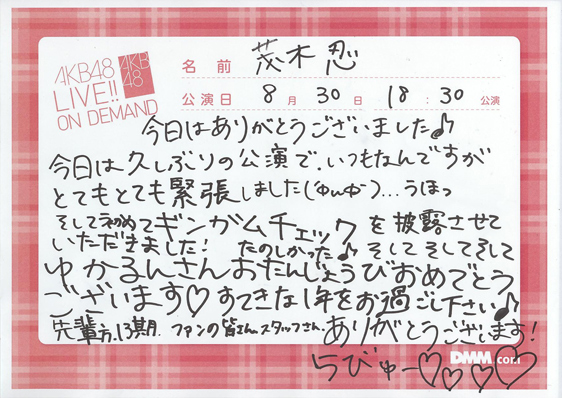 AKB48
LIVE!!
ON DEMAND
AKB
48
名前 茂木忍
公演日 8月30日 18:30公演
今日はありがとうございました♪
今日は久しぶりの公演で、いつもなんですが
とてもとても緊張しました(ゆいゆ)...うほっ
そして初めてギンガムチェックを披露させて
いただきました! たのしかった♪ そしてそしてそして
ゆかるんさんおたんじょうびおめでとう
ございます♡すてきな1年をお過ごし下さい♪
先輩方、13期、ファンの皆さん、スタッフさん、ありがとうございます!
らびゅー♡♡♡♡
DMM.com